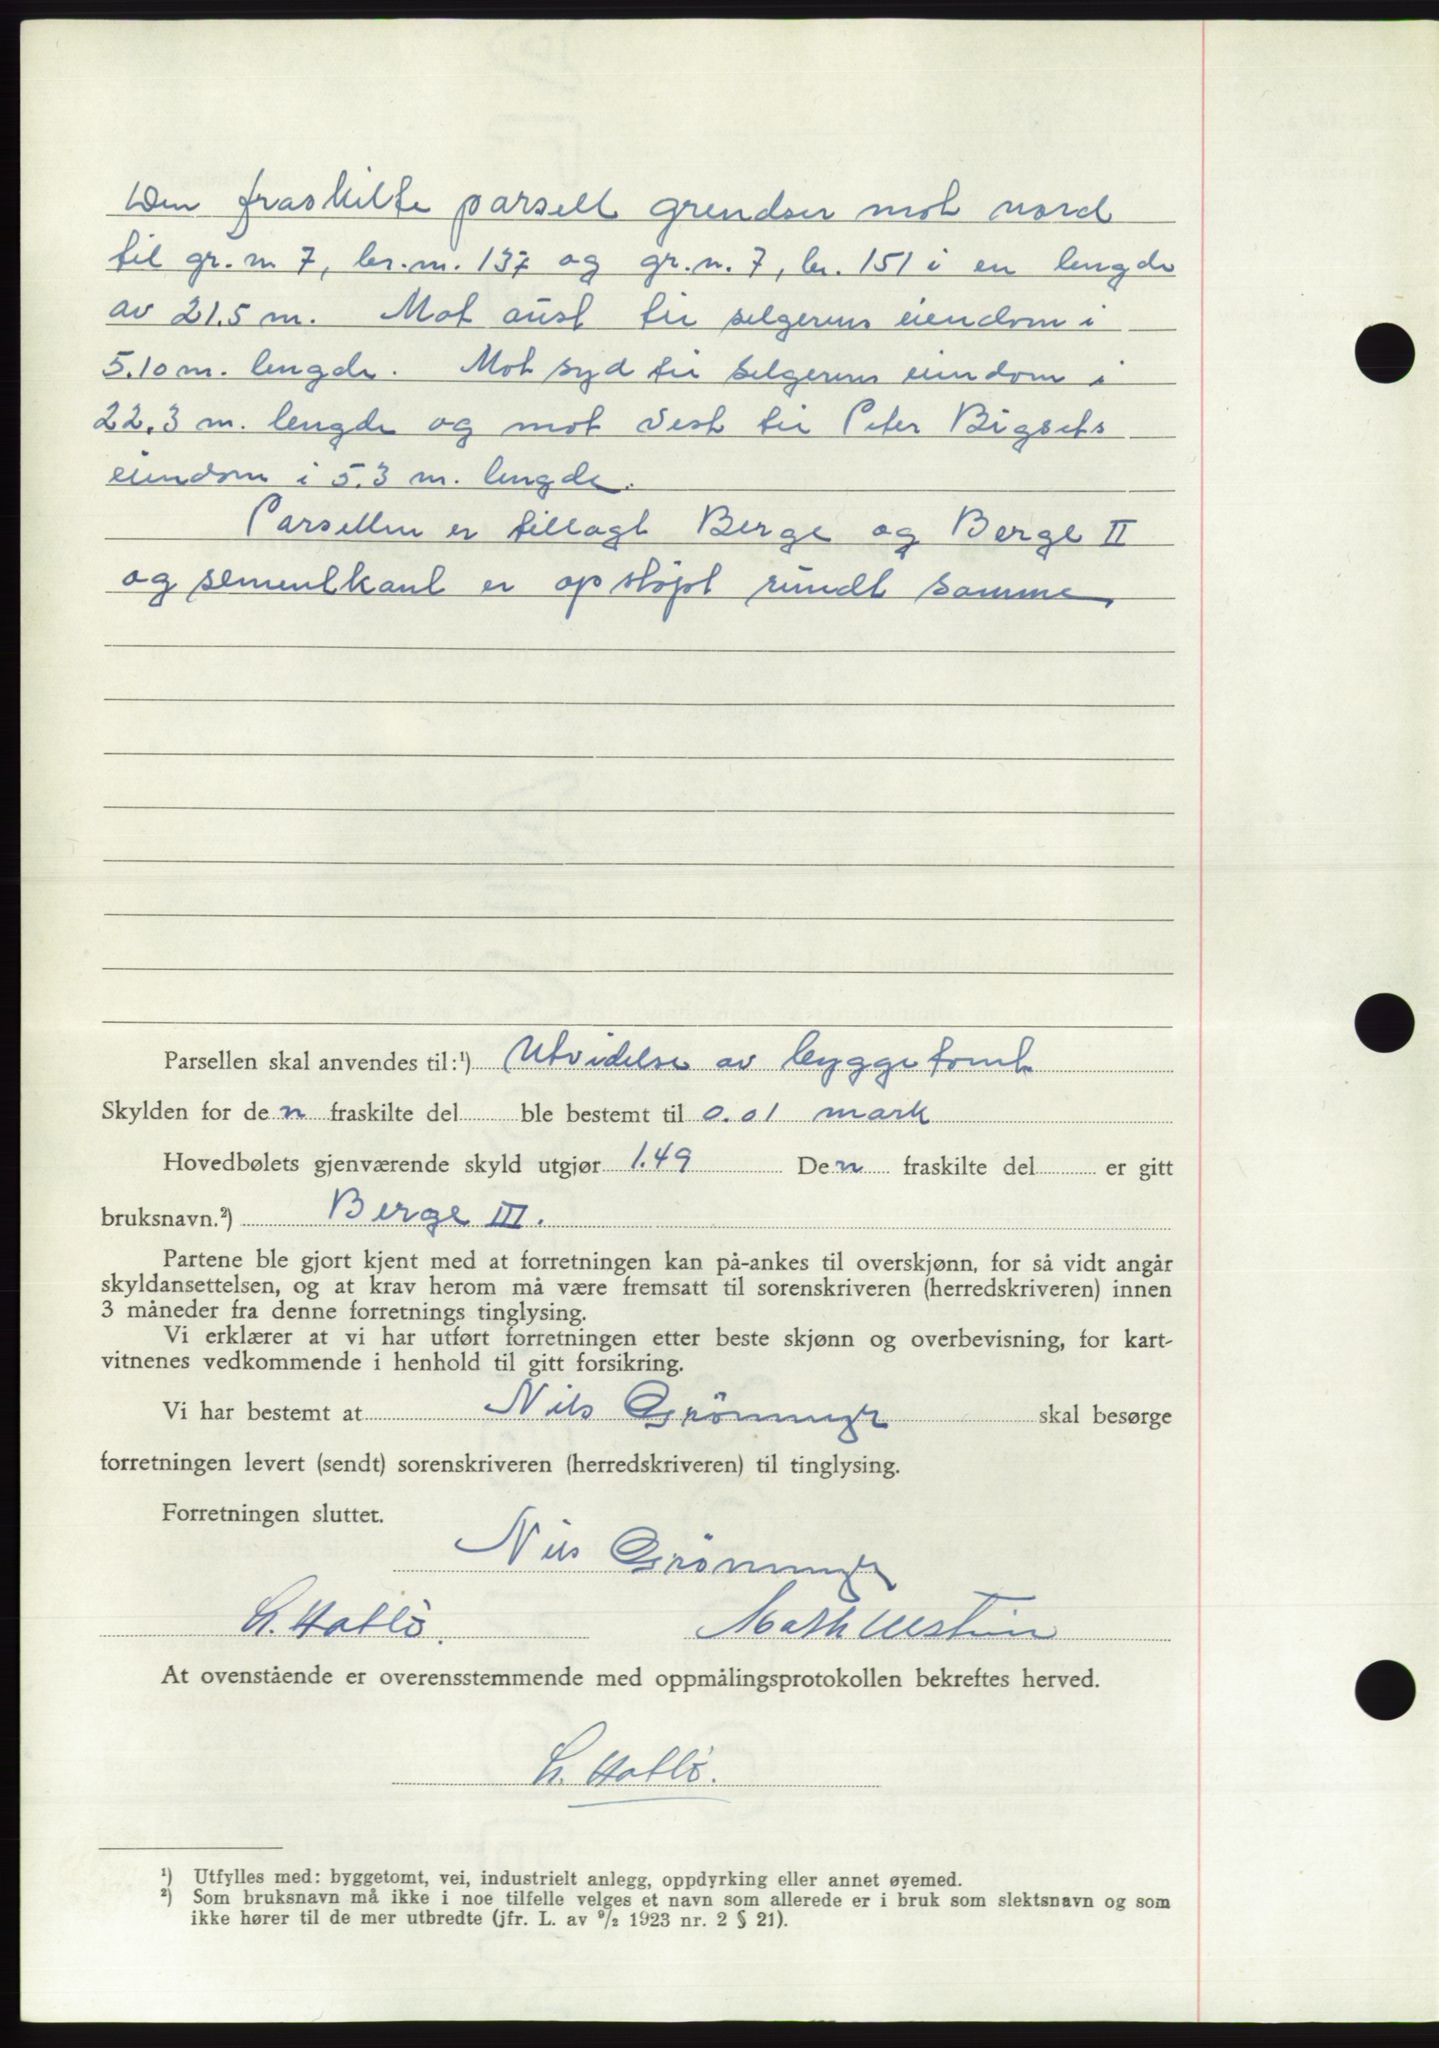 Den fraskilte parsell grendser mot nord
til gr. n. 7, br. n. 137 og gr. n. 7, br. 151 i en lengde
av 21.5 m. Mot aust til selgerens eiendom i
5.10 m. lengde. Mot syd til selgerens eiendom i
22.3 m. lengde og mot vest til Peter Bigsets
eiendom i 5.3 m. lengde.
Parsellen er tillagt Berge og Berge II
og sementkant er opstøpt rundt samme.
Parsellen skal anvendes til:¹) Utvidelse av byggetomt
Skylden for den fraskilte del ble bestemt til 0.01 mark
Hovedbølets gjenværende skyld utgjør 1.49 Den fraskilte del er gitt
bruksnavn.²) Berge III.
Partene ble gjort kjent med at forretningen kan på-ankes til overskjønn, for så vidt angår
skyldansettelsen, og at krav herom må være fremsatt til sorenskriveren (herredskriveren) innen
3 måneder fra denne forretnings tinglysing.
Vi erklærer at vi har utført forretningen etter beste skjønn og overbevisning, for kart-
vitnenes vedkommende i henhold til gitt forsikring.
Vi har bestemt at Nils Gröningsæter skal besørge
forretningen levert (sendt) sorenskriveren (herredskriveren) til tinglysing.
Forretningen sluttet.
Nils Gröningsæter
L. Hatlö. Math Ulstein
At ovenstående er overensstemmende med oppmålingsprotokollen bekreftes herved.
L. Hatlö.
¹) Utfylles med: byggetomt, vei, industrielt anlegg, oppdyrking eller annet øyemed.
²) Som bruksnavn må ikke i noe tilfelle velges et navn som allerede er i bruk som slektsnavn og som
ikke hører til de mer utbredte (jfr. L. av ⁹/₂ 1923 nr. 2 § 21).